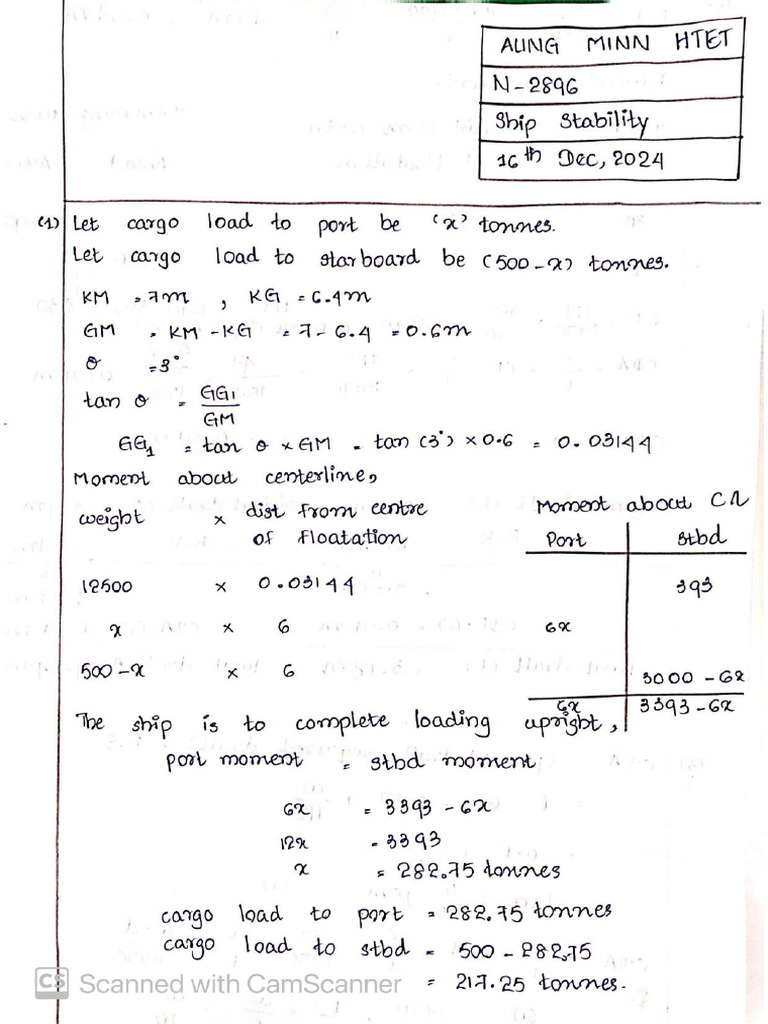 AUNG MINN HTET
N-2896
Ship Stability
16th Dec, 2024
(1) Let cargo load to port be 'x' tonnes.
Let cargo load to starboard be (500-x) tonnes.
KM = 7m , KG = 6.4m
GM = KM - KG = 7 - 6.4 = 0.6m
θ = 3°
tan θ = GG1/GM
GG1 = tan θ × GM = tan (3°) × 0.6 = 0.03144
Moment about centerline,
weight × dist from centre of floatation
Moment about CL
Port Stbd
12500 × 0.03144 393
x × 6 6x
500-x × 6 3000 - 6x
6x 3393-6x
The ship is to complete loading upright,
port moment = stbd moment
6x = 3393 - 6x
12x = 3393
x = 282.75 tonnes
cargo load to port = 282.75 tonnes
cargo load to stbd = 500 - 282.75
= 217.25 tonnes.
CS Scanned with CamScanner